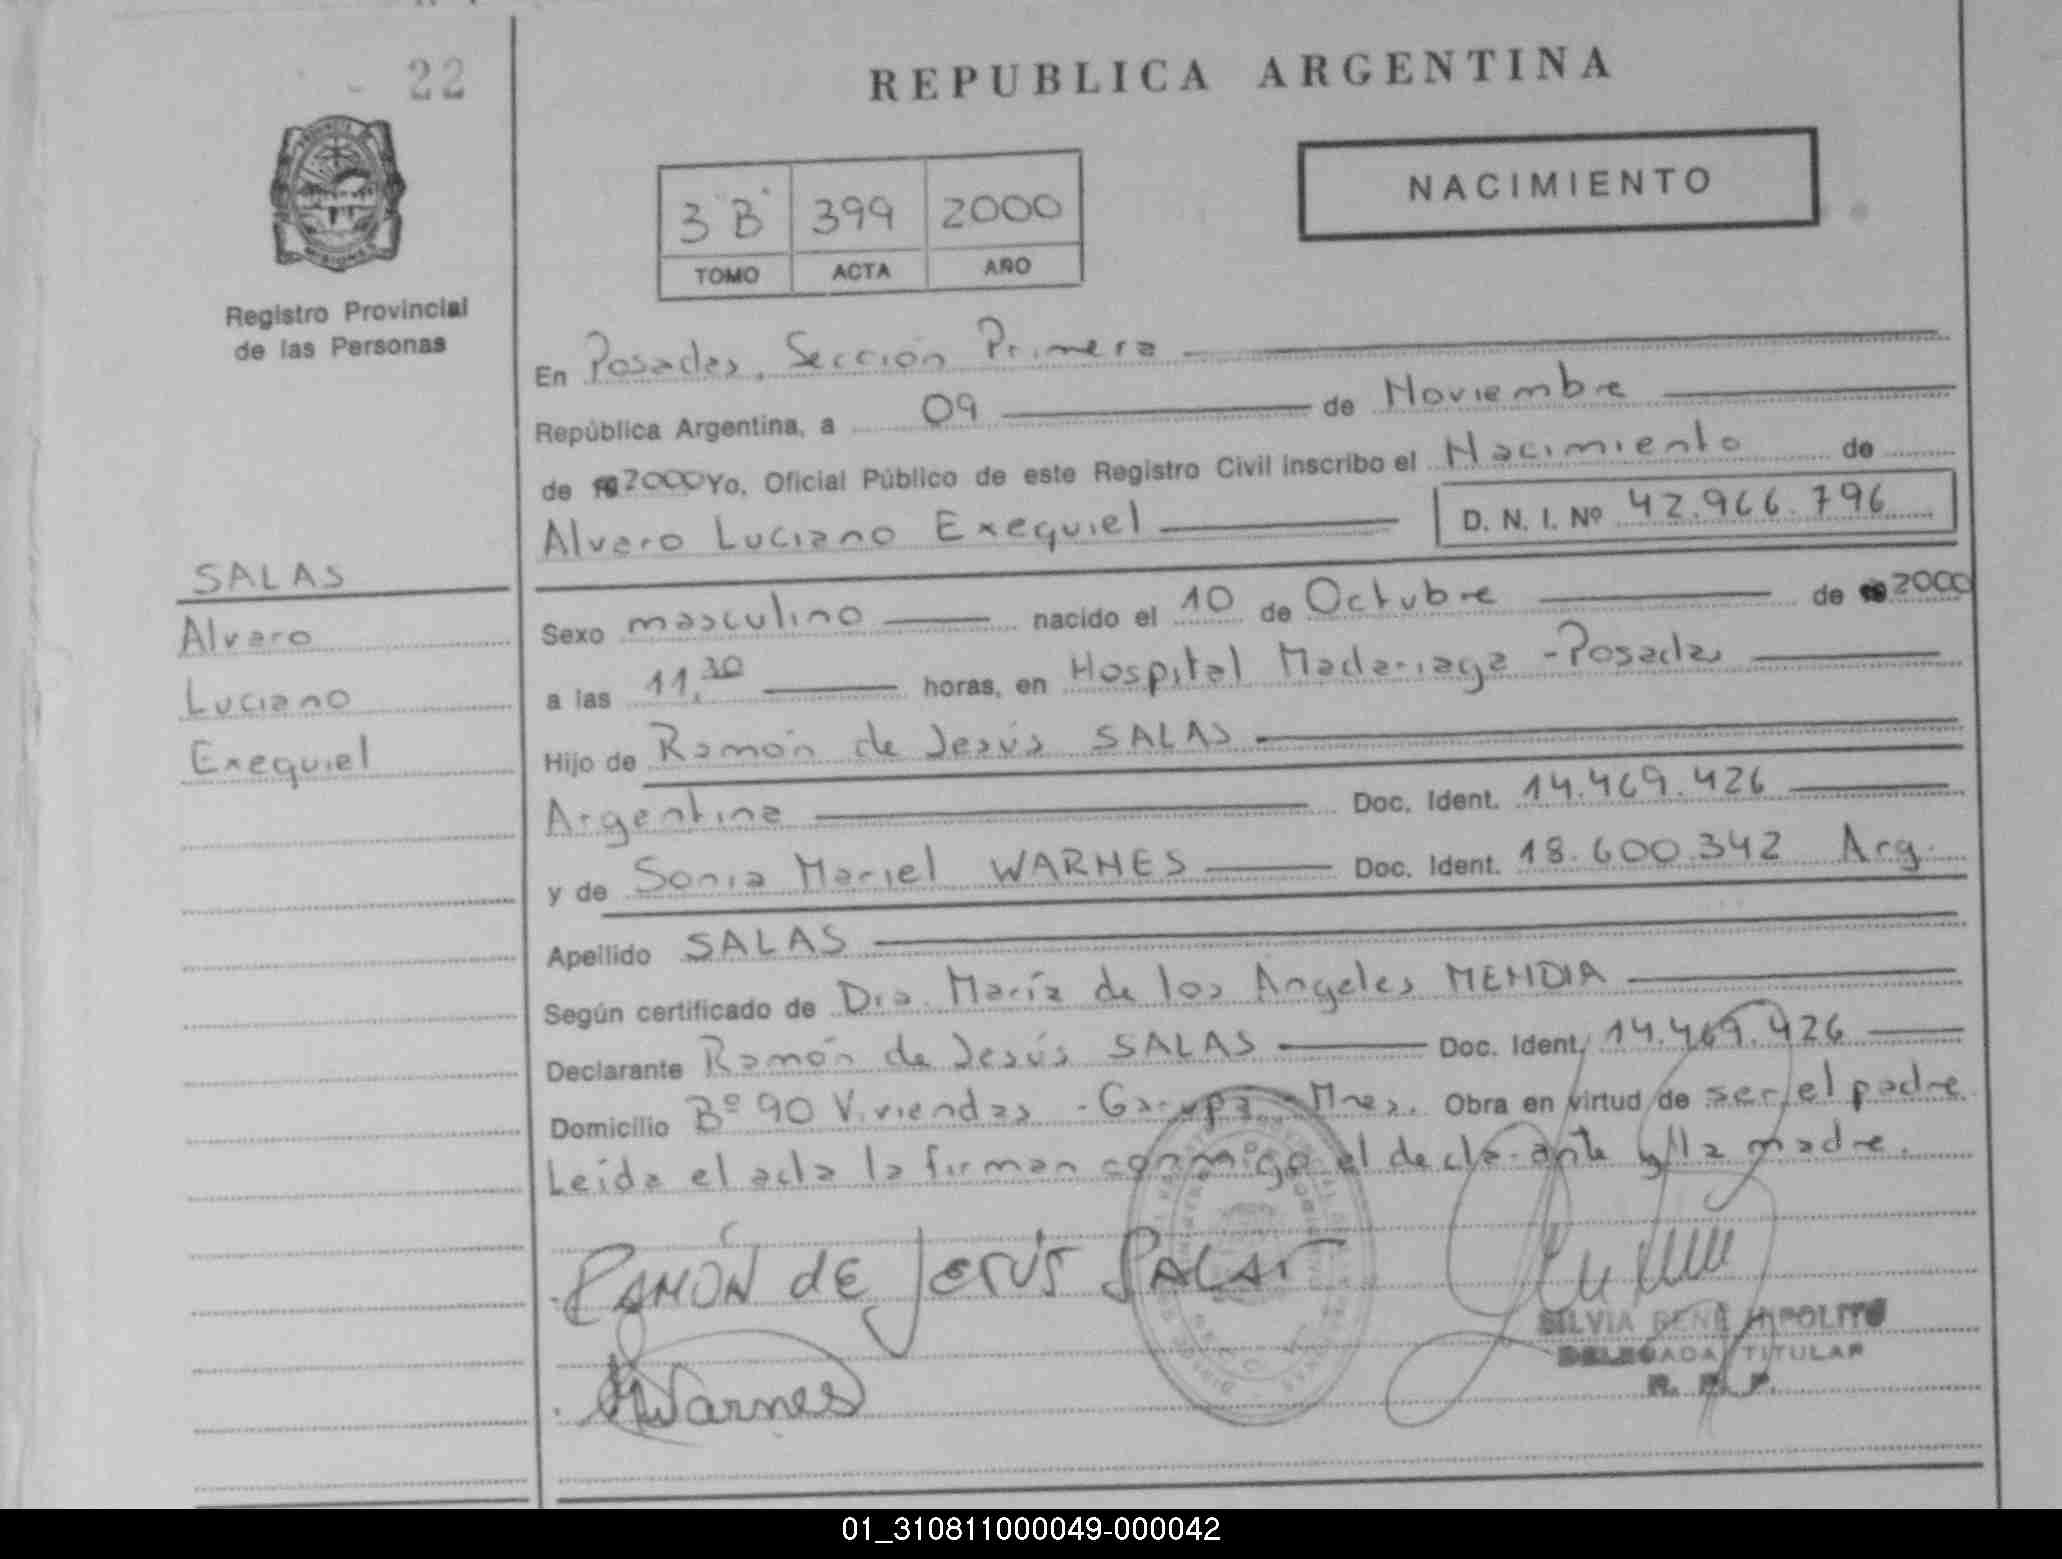 22
REPUBLICA ARGENTINA
NACIMIENTO
3 "B" 399 2000
TOMO ACTA AÑO
Registro Provincial
de las Personas
En Posadas, Sección Primera
República Argentina, a 09 de Noviembre
de 2000 Yo, Oficial Público de este Registro Civil inscribo el Nacimiento de
Alvaro Luciano Exequiel D. N. I. Nº 42.966.796
SALAS
Alvaro
Luciano
Exequiel
Sexo masculino nacido el 10 de Octubre de 2000
a las 11,30 horas, en Hospital Madariaga - Posadas
Hijo de Ramón de Jesús SALAS
Argentina Doc. Ident. 14.469.426
y de Sonia Mariel WARNES Doc. Ident. 18.600.342 Arg.
Apellido SALAS
Según certificado de Dra. María de los Angeles MENDIA
Declarante Ramón de Jesús SALAS Doc. Ident. 14.469.426
Domicilio Bº 90 Viviendas - Garupá - Mnes. Obra en virtud de ser el padre
Leída el acta la firman conmigo el declarante y la madre.
RAMÓN dE JESÚS SALAS
Warnes
SILVIA RENE HIPOLITO
DELEGADA TITULAR
R. P. P.
01_310811000049-000042